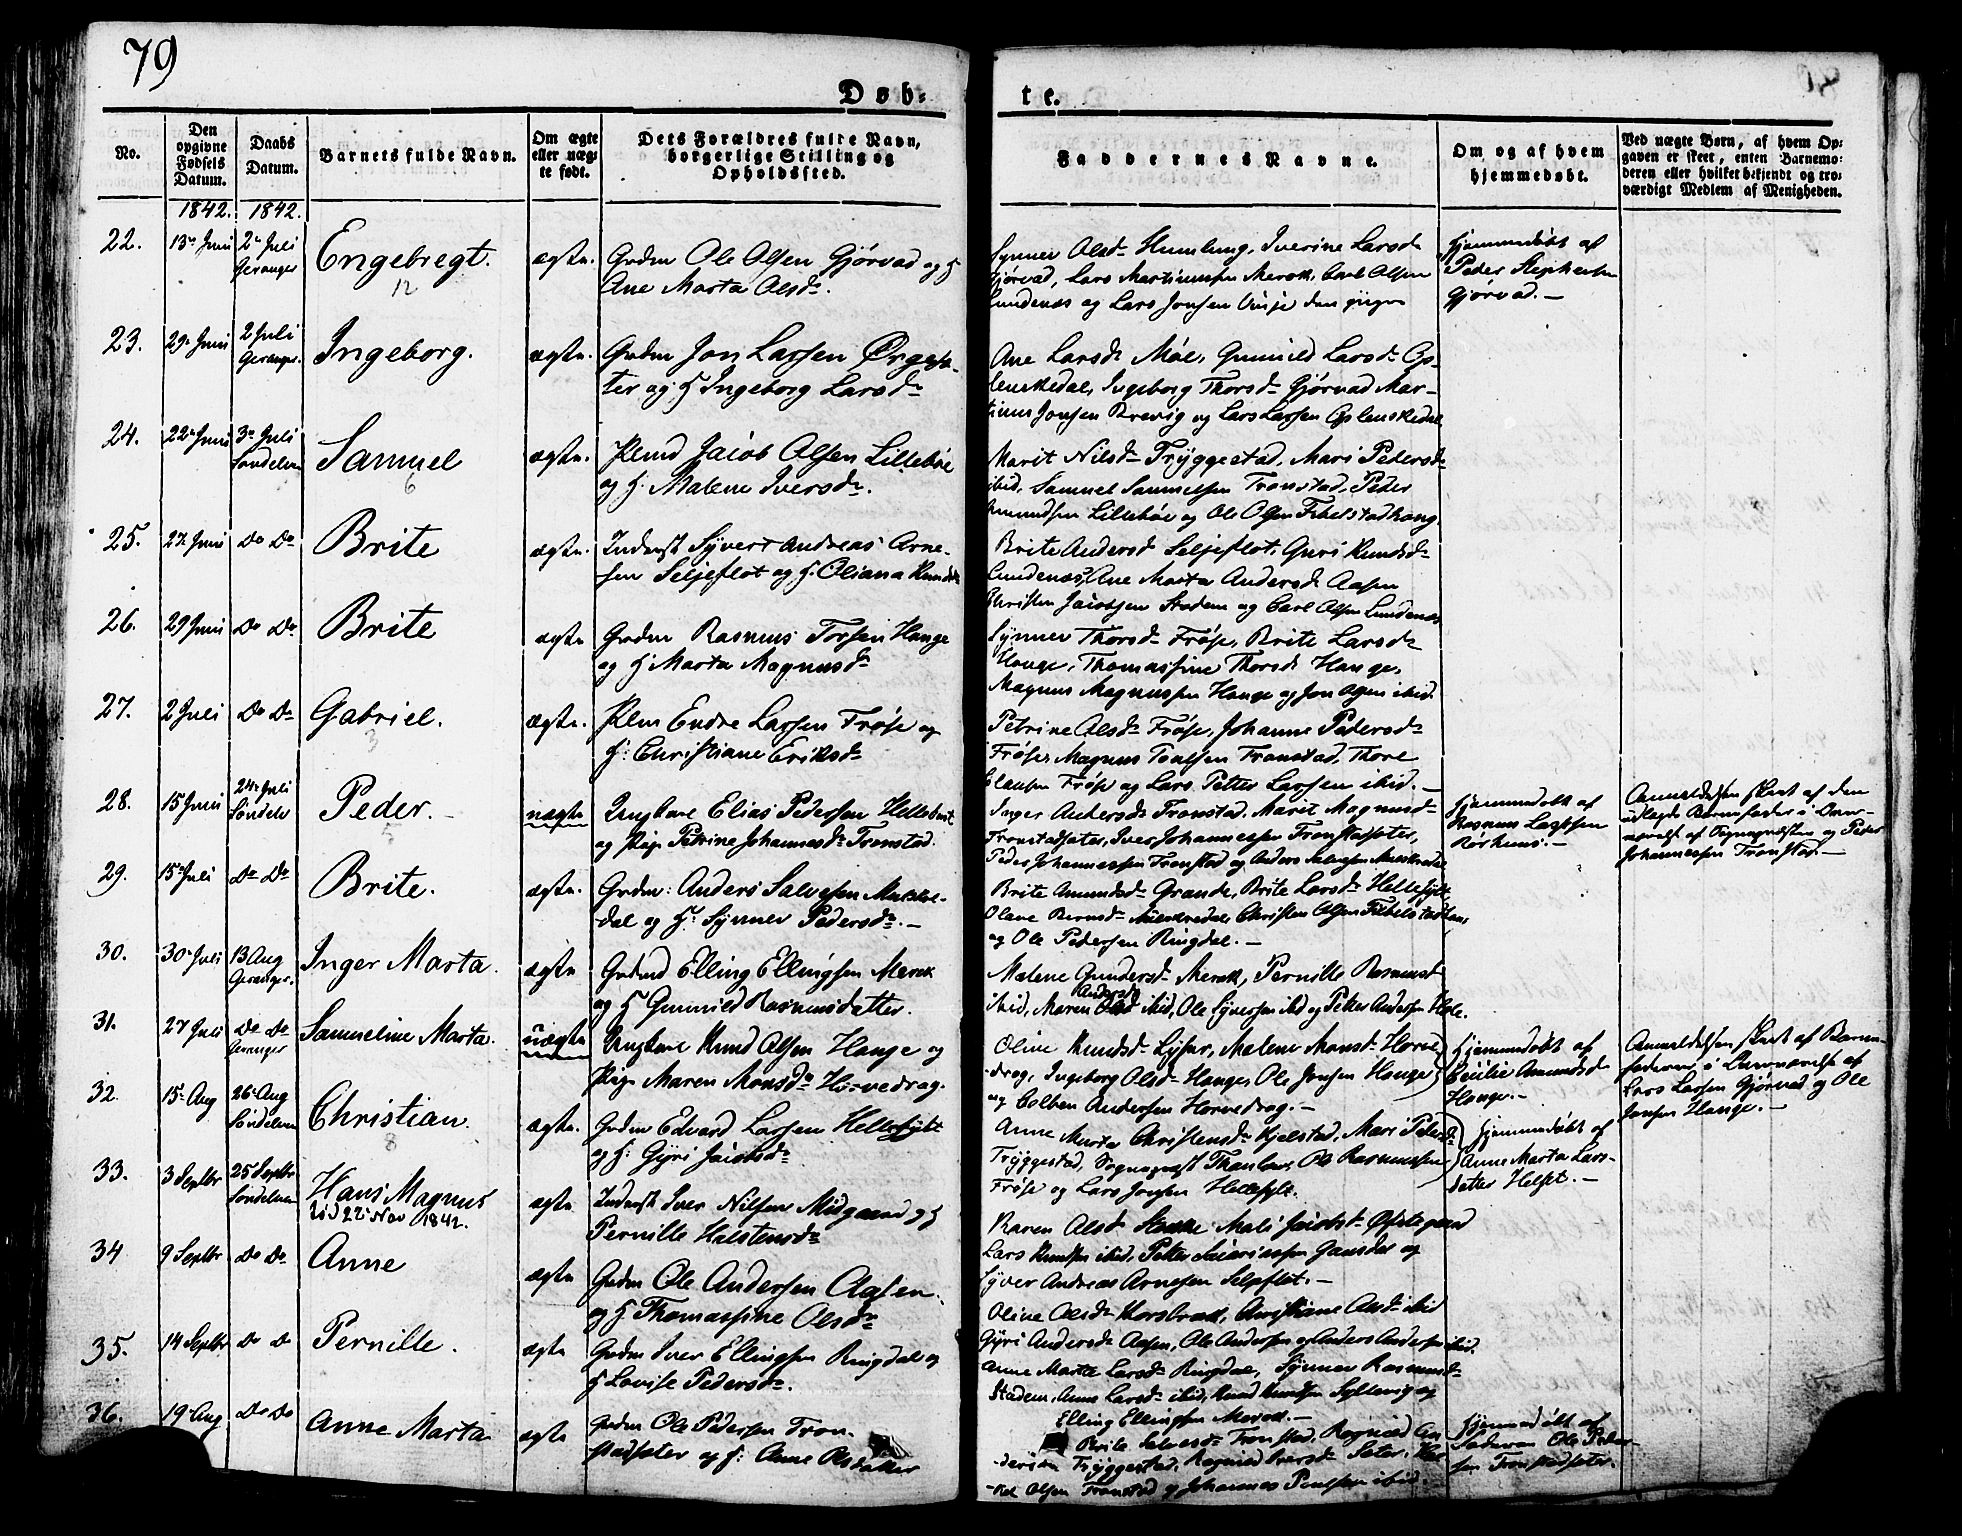 79
Døb-
te.
No.
Den opgivne Fødsels Datum.
Daabs Datum.
Barnets fulde Navn.
Om ægte eller uæg- te født.
Dets Forældres fulde Navn, borgerlige Stilling og Opholdssted.
Faddernes Navne.
Om og af hvem hjemmedøbt.
Ved uægte Børn, af hvem Op- gaven er skeet, enten Barnemo- deren eller hvilket bekjendt og tro- værdigt Medlem af Menigheden.
1842. 1842.
22. 13 Juni 2 Juli Geranger Engebregt. ægte. Grdm Ole Olsen Gjørvad og H
Ane Marta Olsd.
12
Synner Olsd Humlung, Iverine Larsd
Gjørvad, Lars Martinussen Merok, Carl Olsen
Lundenæs og Lars Jonsen Vinje den yngre
Hjemmedøbt af
Peder Stephensen
Gjørvad.—
23. 29 Juni 2 Juli Geranger. Ingeborg. ægte. Grdm Jon Larssen
og H Ingeborg Larsd
Ane Larsd Møe, Gunild Larsd Op-
lenskedal, Ingeborg Thorsd Gjørvad Mar-
tinus Jonsen Brevig og Lars Larsen Oplenskedal
24. 22 Juni 3 Juli Søndelven Samuel ægte. Plmd Jacob Olsen Lillebøe
og H. Malene Iversd.
6
Marit Nilsd Tryggestad, Mari Pedersd
ibid, Samuel Samuelsen Tronstad, Peder
Amundsen Lillebøe og Ole Olsen Fibelstadhoug.
25. 27 Juni Do Do Brite ægte. Inderst Syvert Andreas Arne-
sen Seljeflot og H. Oliana Knudsd
Brite Andersd Seljeflot, Guri Knudsd
Lundenæs, Ane Marta Andersd Aasen
Christen Jacobsen Stadem og Carl Olsen Lundenæs
26. 29 Juni Do Do Brite ægte Grdm Rasmus Torsen Hauge
og H Marta Magnusd
Synner Thorsd Frøse, Brite Larsd
Hauge, Thomassine Thorsd Hauge,
Magnus Magnussen Hauge og Jon Olsen ibid.
27. 2 Juli Do Do Gabriel. ægte. Plm Endre Larssen Frøse og
H. Christiane Eriksd
3
Petrine Olsd Frøse, Johanne Pedersd
Frøse, Magnus Tronstad, Thore
Clausen Frøse og Lars Petter Larssen ibid.—
28. 15 Juni 24 Juli Søndelv Peder.— uægte Ungkarl Elias Pedersen
og Pige Petrine Johannesd Tronstad.
5
Inger Andersd Tronstad, Marit Magnusd
Tronstadsæter, Iver Johannessen Tronstadsæter,
Peder Johannessen Tronstad og Anders Salvesen
Hjemmedøbt af
Rasmus Larssen
Rørhuus.—
Anmeldelsen skeet af den
udlagte Barnefader i Over-
værelse af Sognepræsten og Peder
Johannessen Tronstad.—
29. 15 Juli Do Do Brite. ægte. Grdm: Anders Salvesen
dal og H. Synnev Pedersd.—
Brite Amundsd Grande, Brite Larsd Hellesylt
Olave Berntsd Christen Olsen
og Ole Pedersen Ringdal.—
30. 30 Juli 13 Aug Geranger. Inger Marta. ægte Grdmd Elling Ellingsen Merok
og H Gunnild Rasmusdatter.
Malene Gundersd Merok, Pernille Rasmusd
ibid, Maren Andersd ibid, Ole Syversen ibid og Petter Andersen Hole.
31. 27 Juli Do Do Geranger Samueline Marta. uægte Ungkarl Knud Olsen Hauge og
Pige Maren Monsd Horvedrag.
Oline Knudsd Malene Monsd Horve
drag, Ingeborg Olsd Hauge, Ole Jonsen Hauge
og Colben Andersen Horvedrag.—
Hjemmedøbt af
Cecilie Amundsd
Hauge.—
Anmeldelsen skeet af Barne-
faderen, i Overværelse af
Lars Larsen Gjørvad og Ole
Jonsen Hauge.—
32. 15 Aug 26 Aug Søndelven Christian. ægte. Grdm Edvard Larssen Hellesylt
og H. Gyri Jacobsd
8
Anne Marta Christensd Kjelstad, Mari Pedersd
Tryggestad, Sognepræst Ole Rasmussen
Frøse og Lars Jonsen Hellesylt.
Hjemmedøbt af
Anne Marta Lars-
datter Helset.—
33. 3 Septbr 25 Septbr Søndelven Hans Magnus ægte Inderst Iver Nilsen Midgaard og H
død 22 Nov 1842.
Pernille Halstensd
Karen Olsd Mali Jacobsd
Lars Knudsen ibid, Petter
Syver Andreas Arnesen Seljeflot.—
34 9 Septbr Do Do Anne ægte Grdm Ole Andersen Aasen
og H Thomassine Olsd
Oline Olsd Korsbræk, Christiane Olsd ibid
Gyri Andersd Aasen, Ole Andersen og Anders Andersen ibid.
35. 14 Septbr Do Do Pernille. ægte Grdm Iver Ellingsen Ringdal og
H Lovise Pedersd.
Anne Marte Larsd Ringdal, Synnev Rasmusd
Stadem, Anne Larsd ibid, Knud Knudsen Syltevig og
Elling Ellingsen Merok.—
36. 19 Aug Do Do Anne Marta ægte Grdm Ole Pedersen Tron-
stadsæter og H: Anne Olsdatter
Brite Salvesd Tronstad, Ragnild An-
dersd Tryggestad, Ragnild Iversd Sæter,
Olsen Tronstad og Johannes ibid.
Hjemmedøbt af
Faderen Ole Peder-
sen Tronstadsæter.